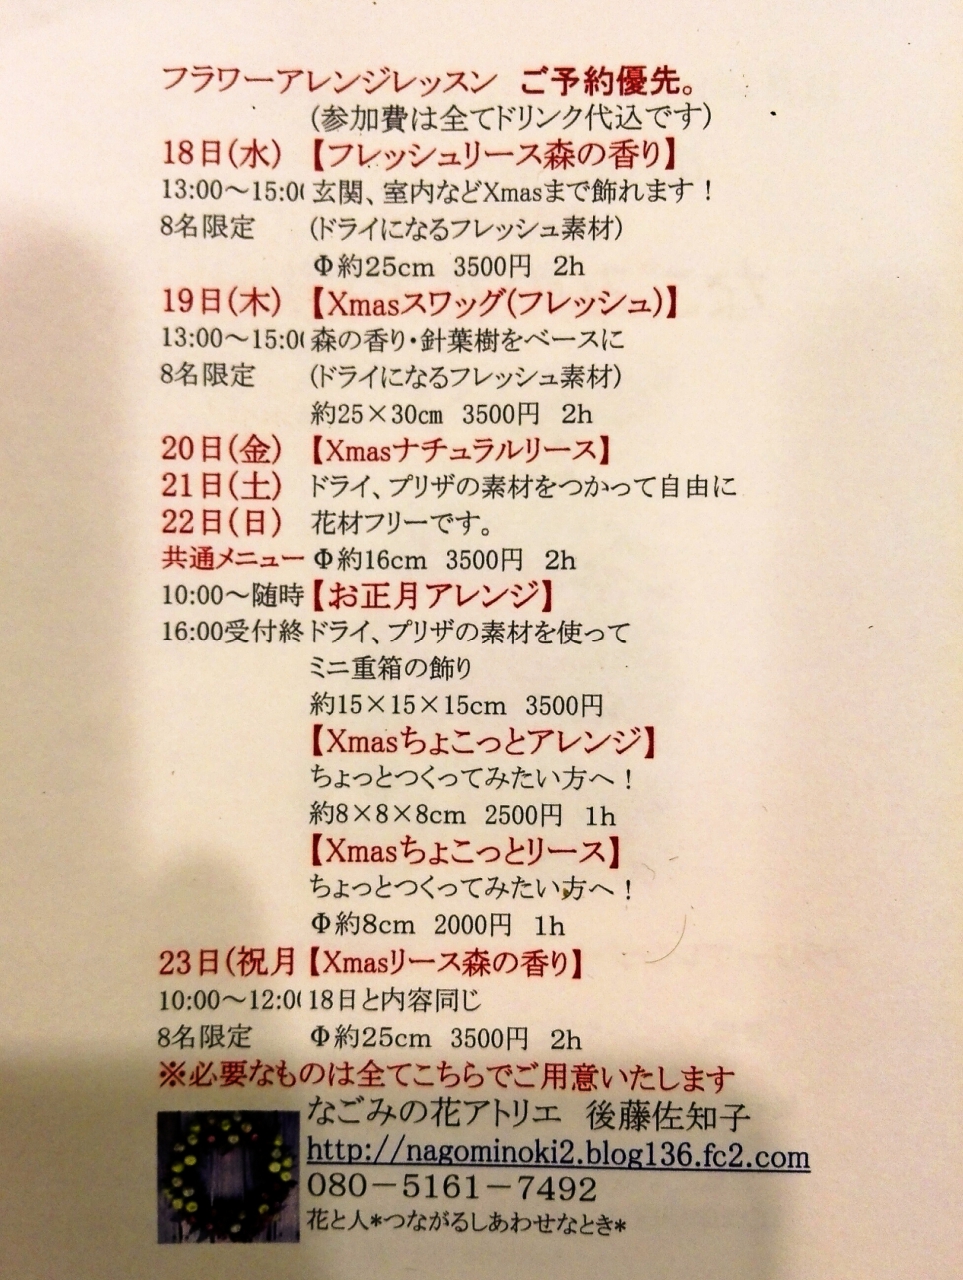 フラワーアレンジレッスン ご予約優先。
(参加費は全てドリンク代込です)
18日(水) 【フレッシュリース森の香り】
13:00～15:00 玄関、室内などXmasまで飾れます！
8名限定 (ドライになるフレッシュ素材)
Φ約25cm 3500円 2h
19日(木) 【Xmasスワッグ(フレッシュ)】
13:00～15:00 森の香り・針葉樹をベースに
8名限定 (ドライになるフレッシュ素材)
約25×30㎝ 3500円 2h
20日(金) 【Xmasナチュラルリース】
21日(土) ドライ、プリザの素材をつかって自由に
22日(日) 花材フリーです。
共通メニュー Φ約16cm 3500円 2h
10:00～随時 【お正月アレンジ】
16:00受付終 ドライ、プリザの素材を使って
ミニ重箱の飾り
約15×15×15cm 3500円
【Xmasちょこっとアレンジ】
ちょっとつくってみたい方へ！
約8×8×8cm 2500円 1h
【Xmasちょこっとリース】
ちょっとつくってみたい方へ！
Φ約8cm 2000円 1h
23日(祝月 【Xmasリース森の香り】
10:00～12:00 18日と内容同じ
8名限定 Φ約25cm 3500円 2h
※必要なものは全てこちらでご用意いたします
なごみの花アトリエ 後藤佐知子
http://nagominoki2.blog136.fc2.com
080－5161－7492
花と人*つながるしあわせなとき*